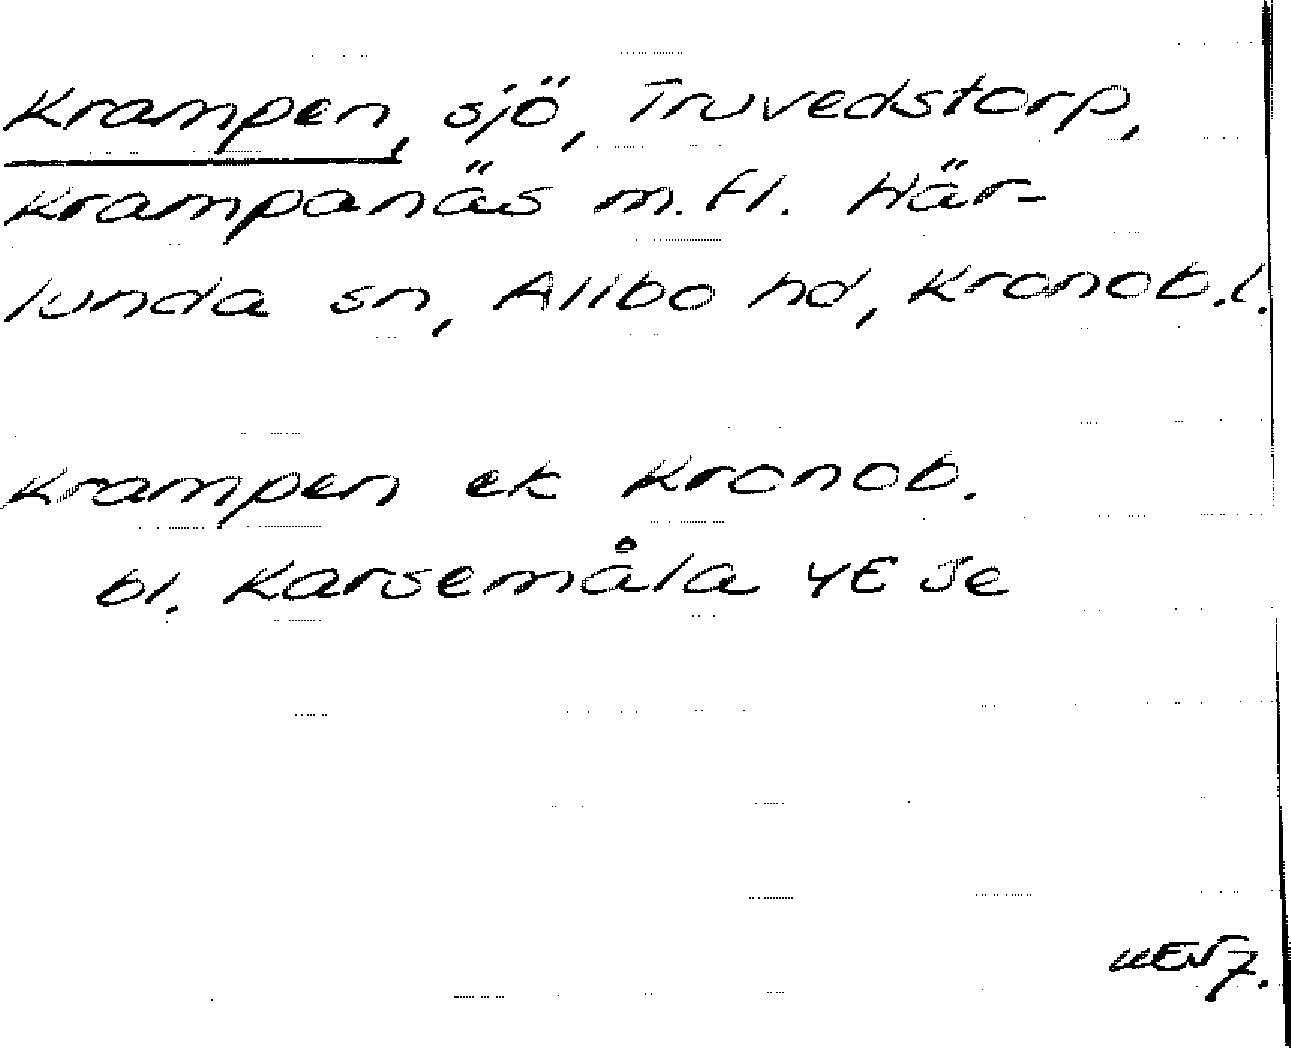 Krampen, sjö, Truvedstorp,
Krampanäs m.fl. Här-
lunda sn, Allbo hd, Kronob.l.
Krampen ek Kronob.
bl. Karsemåla 4E Je